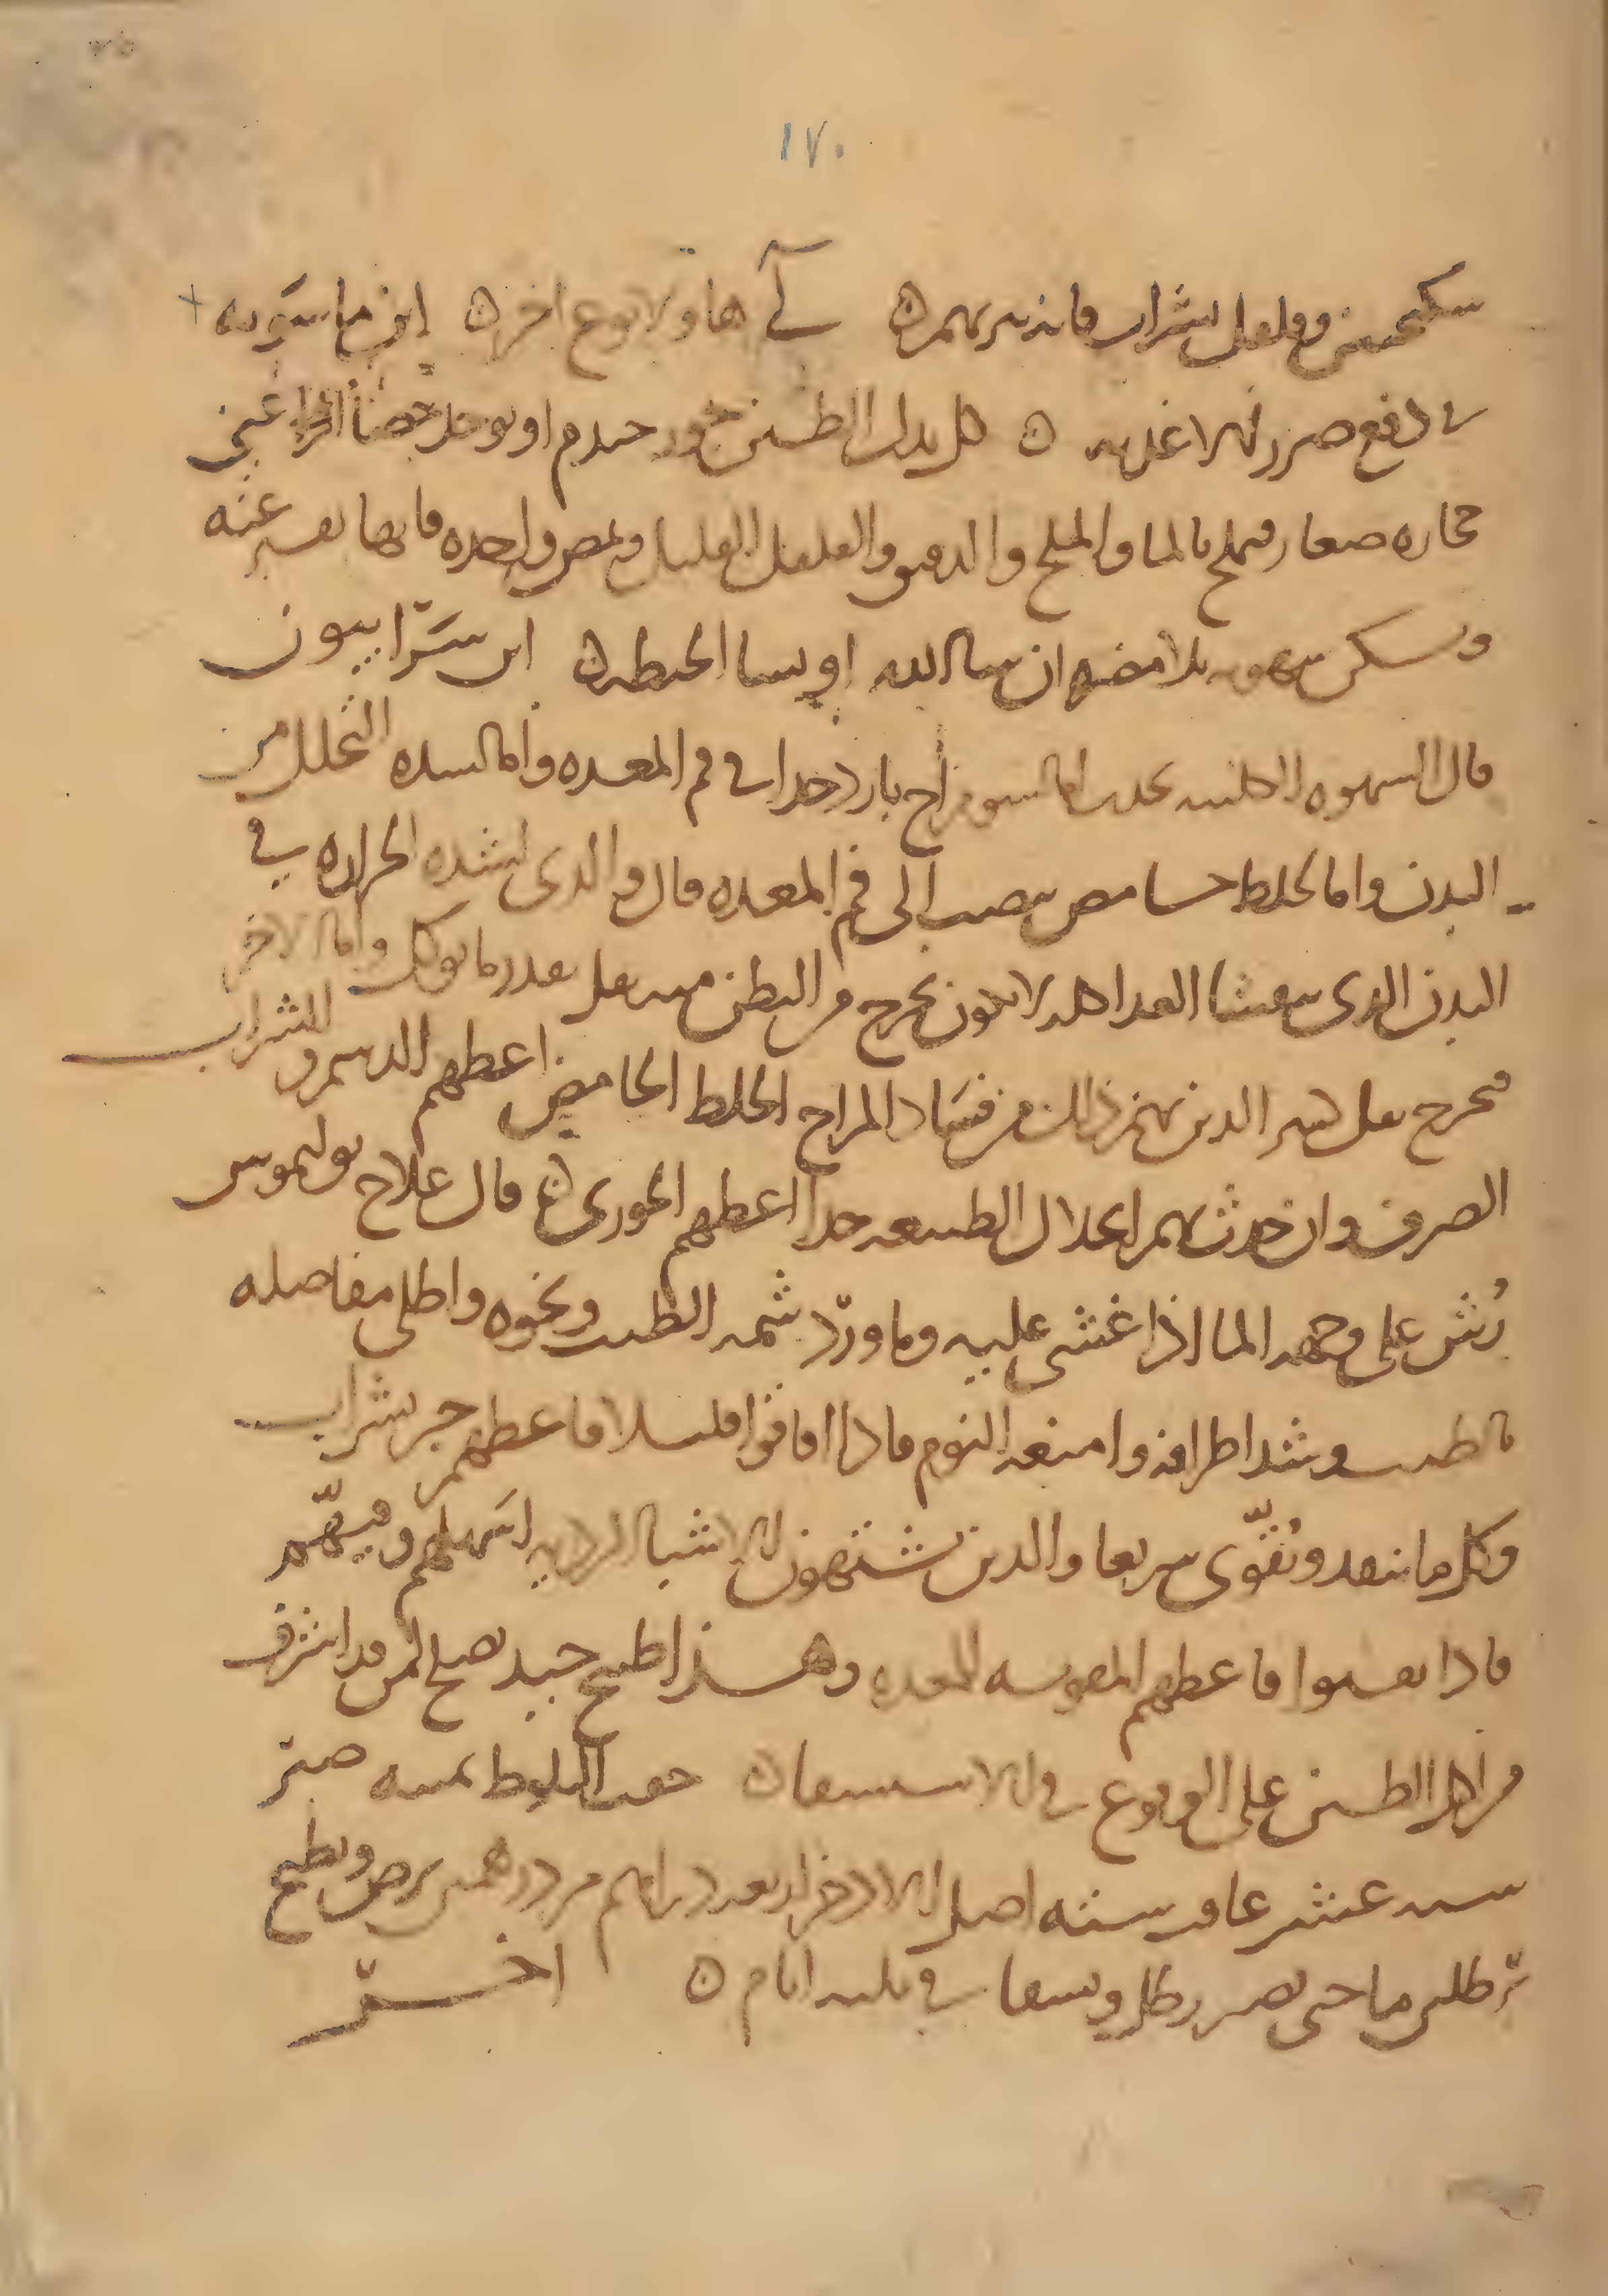 ١٧٠
سكنجبين وفلفل بشراب فانه يبريهم ه لى هاولا نوع اخر ه ابن ماسويه
في دفع ضرر الاغذيه ه كل بدل الطين جيدم او يوخذ حصا اعني
حجاره صغار فيملح بالما والملح والدقيق والفلفل القليل ويمص واحده فانها تفسر عنه
ويسكن شهوته بلا مضره ان شا الله او بنشا الحنطه ه ابن سرابيون
قال الشهوه الكلبيه تحدث اما لسو مزاج بارد جدا في فم المعده واما لشده التحلل من
البدن واما لخلط حامض ينصب الى فم المعده قال والذي لشده الحراره في
البدن الذي ينفشا الغدا كله لا يكون يخرج من البطن منه ثفل بقدر ما يوكل واما الاخر
فيخرج ثفل كثير الذين بهم ذلك من فساد المزاج الخلط الحامض اعطهم الدسم والشراب
الصرف وان حدث بهم انحلال الطبيعه جدا اعطهم الجوزي ه قال علاج بوليموس
رش على وجهه الما اذا غشي عليه وماورد شمه الطيب ونحوه واطلي مفاصله
بالطيب وشد اطرافه وامنعه النوم فاذا افاقوا قليلا فاعطهم خبز بشراب
وكل ما ينفد ويقوي سريعا والذين يشتهون الاشيا الرديه اسهلهم وقيهم
فاذا نقيوا فاعطهم المقويه للمعده وهذا طبيخ جيد يصلح لمن قد اشرف
من اكل الطين على الوقوع في الاستسقا ه جفت البلوط ثمنيه صبر
سته عشر عافت سته اصل الاذخر اربعه دراهم مر درهمين يرض ويطبخ
بثلثه رطلين ما حتى يصير رطل ويسقا في ثلثه ايام ه اخر